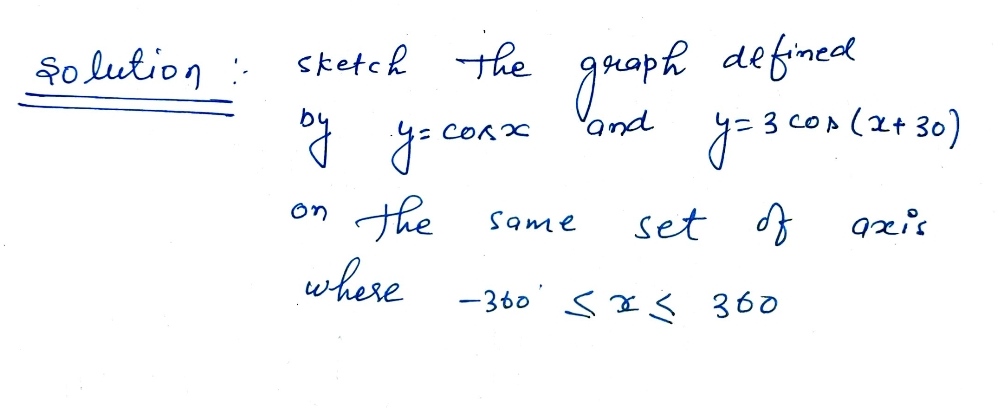 Solution :- sketch the graph defined
by y = cosx and y = 3 cos (x + 30)
on the same set of axis
where -360° ≤ x ≤ 360